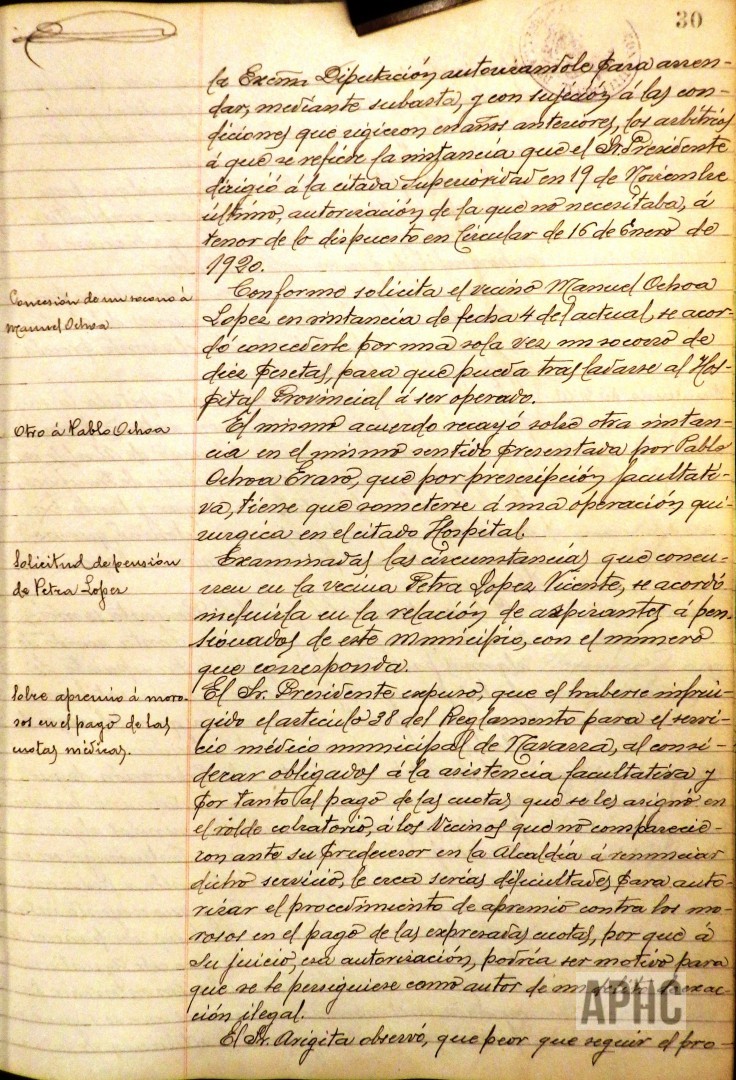 30
la Excma Diputación autorizandole para arren-
dar, mediante subasta, y con sujeción á las con-
diciones que rigieron en años anteriores, los arbitrios
á que se refiere la instancia que el Sr. Presidente
dirigió á la citada Superioridad en 19 de Noviembre
último, autorización de la que no necesitaba, á
tenor de lo dispuesto en Circular de 16 de Enero de
1920.
Concesión de un socorro á
Manuel Ochoa
Conforme solicita el vecino Manuel Ochoa
Lopez en instancia de fecha 4 del actual, se acor-
dó concederle por una sola vez un socorro de
diez pesetas, para que pueda trasladarse al Hos-
pital Provincial á ser operado.
Otro á Pablo Ochoa
El mismo acuerdo recayó sobre otra instan-
cia en el mismo sentido presentada por Pablo
Ochoa Eraso, que por prescripción facultati-
va, tiene que someterse á una operación qui-
rurgica en el citado Hospital.
Solicitud de pensión
de Petra Lopez
Examinadas las circunstancias que concu-
rren en la vecina Petra Lopez Vicente, se acordó
incluirla en la relación de aspirantes á pen-
sionados de este Municipio, con el número
que corresponda.
Sobre apremio á moro-
sos en el pago de las
cuotas médicas.
El Sr. Presidente expuso, que el haberse infrin-
gido el artículo 38 del Reglamento para el servi-
cio médico municipal de Navarra, al consi-
derar obligados á la asistencia facultativa y
por tanto al pago de las cuotas que se les asignó en
el rolde cobratorio, á los vecinos que no comparecie-
ron ante su predecesor en la Alcaldía á renunciar
dicho servicio, le crea serias dificultades para auto-
rizar el procedimiento de apremio contra los mo-
rosos en el pago de las expresadas cuotas, por que á
su juicio, esa autorización, podría ser motivo para
que se le persiguiese como autor de un exac-
ción ilegal.
El Sr. Arigita observó, que peor que seguir el pro-
APHC